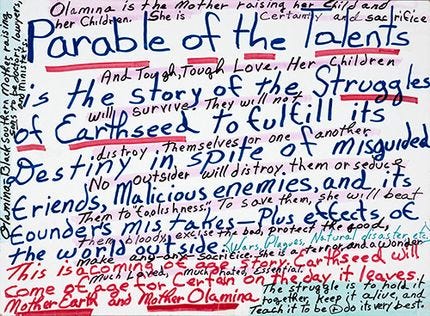 Olamina is the Mother raising her Child and
her Children. She is Certainty and sacrifice
Parable of the Talents
And Tough, Tough Love. Her Children
is the story of the Struggles
will survive. They will not
of Earthseed to fulfill its
distroy themselves or one another
Destiny in spite of misguided
No outsider will distroy them or seduce
Friends, Malicious enemies, and its
Them to foolishness. To save them, she will beat
Founders mistakes—Plus effects of
Them bloody, excise the bad, protect the good,
the world outside. Wars, Plagues, Natural disaster, etc
make any sacrifice. she is afternor, and a wonder
This is a coming of age story. Earthseed will
Much Loved, Much hated, Essential.
come of age for Certain on the day it leaves
Mother Earth and Mother Olamina
The struggle is to hold it
together, keep it alive, and
Teach it to be & do its very best.
Olamina, Black Southern Mother raising
sons to be doctors, lawyers,
and Ministers.